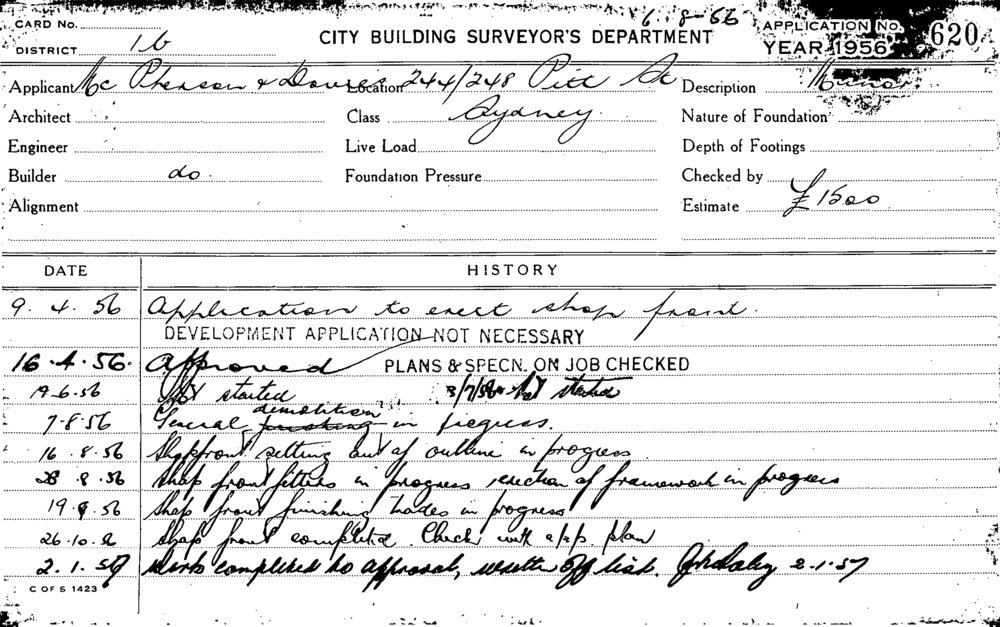 6.8.56
CARD No.
DISTRICT 1b
CITY BUILDING SURVEYOR'S DEPARTMENT
APPLICATION No. 620
YEAR 1956
Applicant Mc Pherson & Davies Location 244/248 Pitt St Description Minor
Architect Class Sydney Nature of Foundation
Engineer Live Load Depth of Footings
Builder do. Foundation Pressure Checked by
Alignment Estimate £1500
DATE HISTORY
9.4.56 Application to erect shop front.
DEVELOPMENT APPLICATION NOT NECESSARY
16.4.56. Approved PLANS & SPECN. ON JOB CHECKED
19.6.56 Not started 3/7/56 Not started
7.8.56 General finishing demolition in progress.
16.8.56 Shopfront setting out of outline in progress
28.8.56 Shop front fitters in progress erection of framework in progress
19.9.56 Shop front finishing trades in progress
26.10.56 Shop front completed. Check with app. plan
2.1.57 Work completed to approval, off list. 2.1.57
C OF S 1423